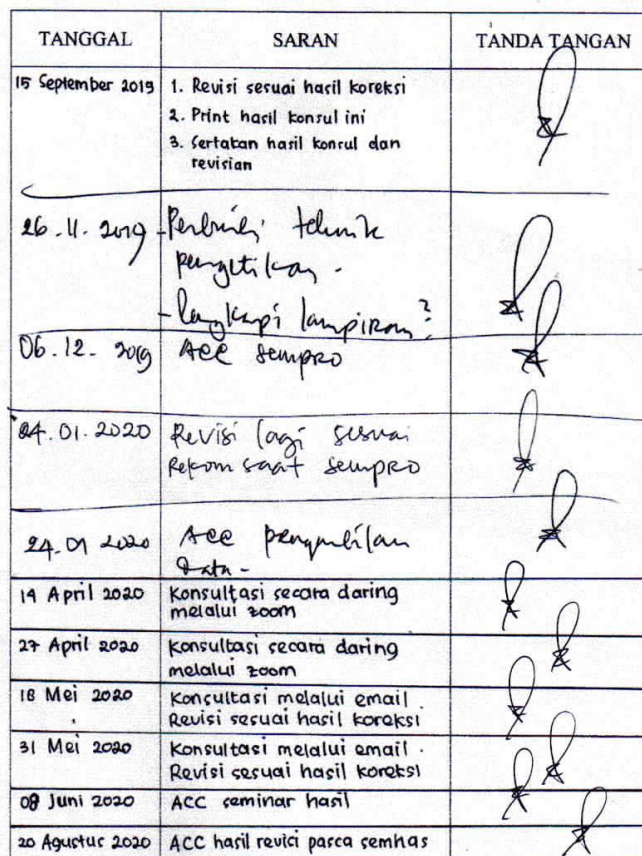 TANGGAL SARAN TANDA TANGAN
15 September 2019 1. Revisi sesuai hasil koreksi
2. Print hasil konsul ini
3. Sertakan hasil konsul dan
revisian
26.11.2019 - Perbaiki teknik
pengetikan -
- lengkapi lampiran?
06.12.2019 Acc sempro
24.01.2020 Revisi lagi sesuai
Rekom saat sempro
24.01 2020 Acc pengambilan
Data -
14 April 2020 Konsultasi secara daring
melalui zoom
27 April 2020 Konsultasi secara daring
melalui zoom
18 Mei 2020 Konsultasi melalui email
Revisi sesuai hasil koreksi
31 Mei 2020 Konsultasi melalui email
Revisi sesuai hasil koreksi
08 Juni 2020 ACC seminar hasil
20 Agustus 2020 ACC hasil revisi pasca semhas